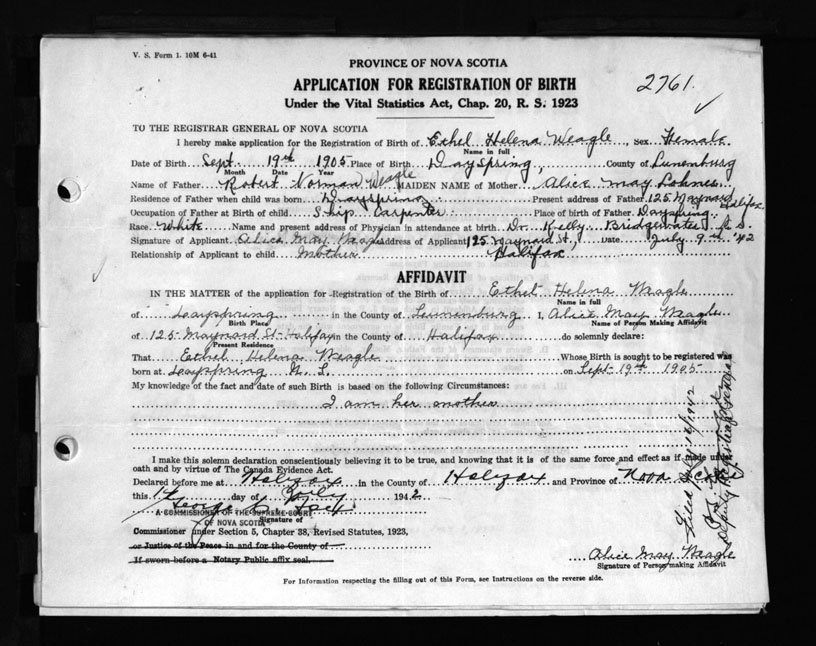 V. S. Form 1. 10M 6-41
PROVINCE OF NOVA SCOTIA
APPLICATION FOR REGISTRATION OF BIRTH
2761.
Under the Vital Statistics Act, Chap. 20, R. S. 1923
TO THE REGISTRAR GENERAL OF NOVA SCOTIA
I hereby make application for the Registration of Birth of Ethel Helena Weagle, Sex Female
Name in full
Date of Birth Sept. 19th 1905 Place of Birth Dayspring, County of Lunenburg
Month Date Year
Name of Father Robert Norman Weagle MAIDEN NAME of Mother Alice May Lohnes
Residence of Father when child was born Dayspring Present address of Father 125 Maynard Halifax
Occupation of Father at Birth of child Ship Carpenter Place of birth of Father Dayspring
Race White Name and present address of Physician in attendance at birth Dr. Kelly Bridgewater N. S.
Signature of Applicant Alice May Weagle Address of Applicant 125 Maynard St. Date July 9th '42
Relationship of Applicant to child Mother Halifax
AFFIDAVIT
IN THE MATTER of the application for Registration of the Birth of Ethel Helena Weagle
Name in full
of Dayspring in the County of Lunenburg I, Alice May Weagle
Birth Place Name of Person Making Affidavit
of 125 Maynard St Halifax in the County of Halifax do solemnly declare:
Present Residence
That Ethel Helena Weagle Whose Birth is sought to be registered was
born at Dayspring N. S. on Sept 19th 1905
My knowledge of the fact and date of such Birth is based on the following Circumstances:
I am her mother
I make this solemn declaration conscientiously believing it to be true, and knowing that it is of the same force and effect as if made under
oath and by virtue of The Canada Evidence Act.
Declared before me at Halifax in the County of Halifax and Province of Nova Scotia
this day of July 1942
George
A COMMISSIONER OF THE SUPREME COURT
OF NOVA SCOTIA Signature of
Commissioner under Section 5, Chapter 38, Revised Statutes, 1923,
or Justice of the Peace in and for the County of
If sworn before a Notary Public affix seal.
Alice May Weagle
Signature of Person making Affidavit
For Information respecting the filling out of this Form, see Instructions on the reverse side.
Filed July 16/1942
Deputy Registrar General